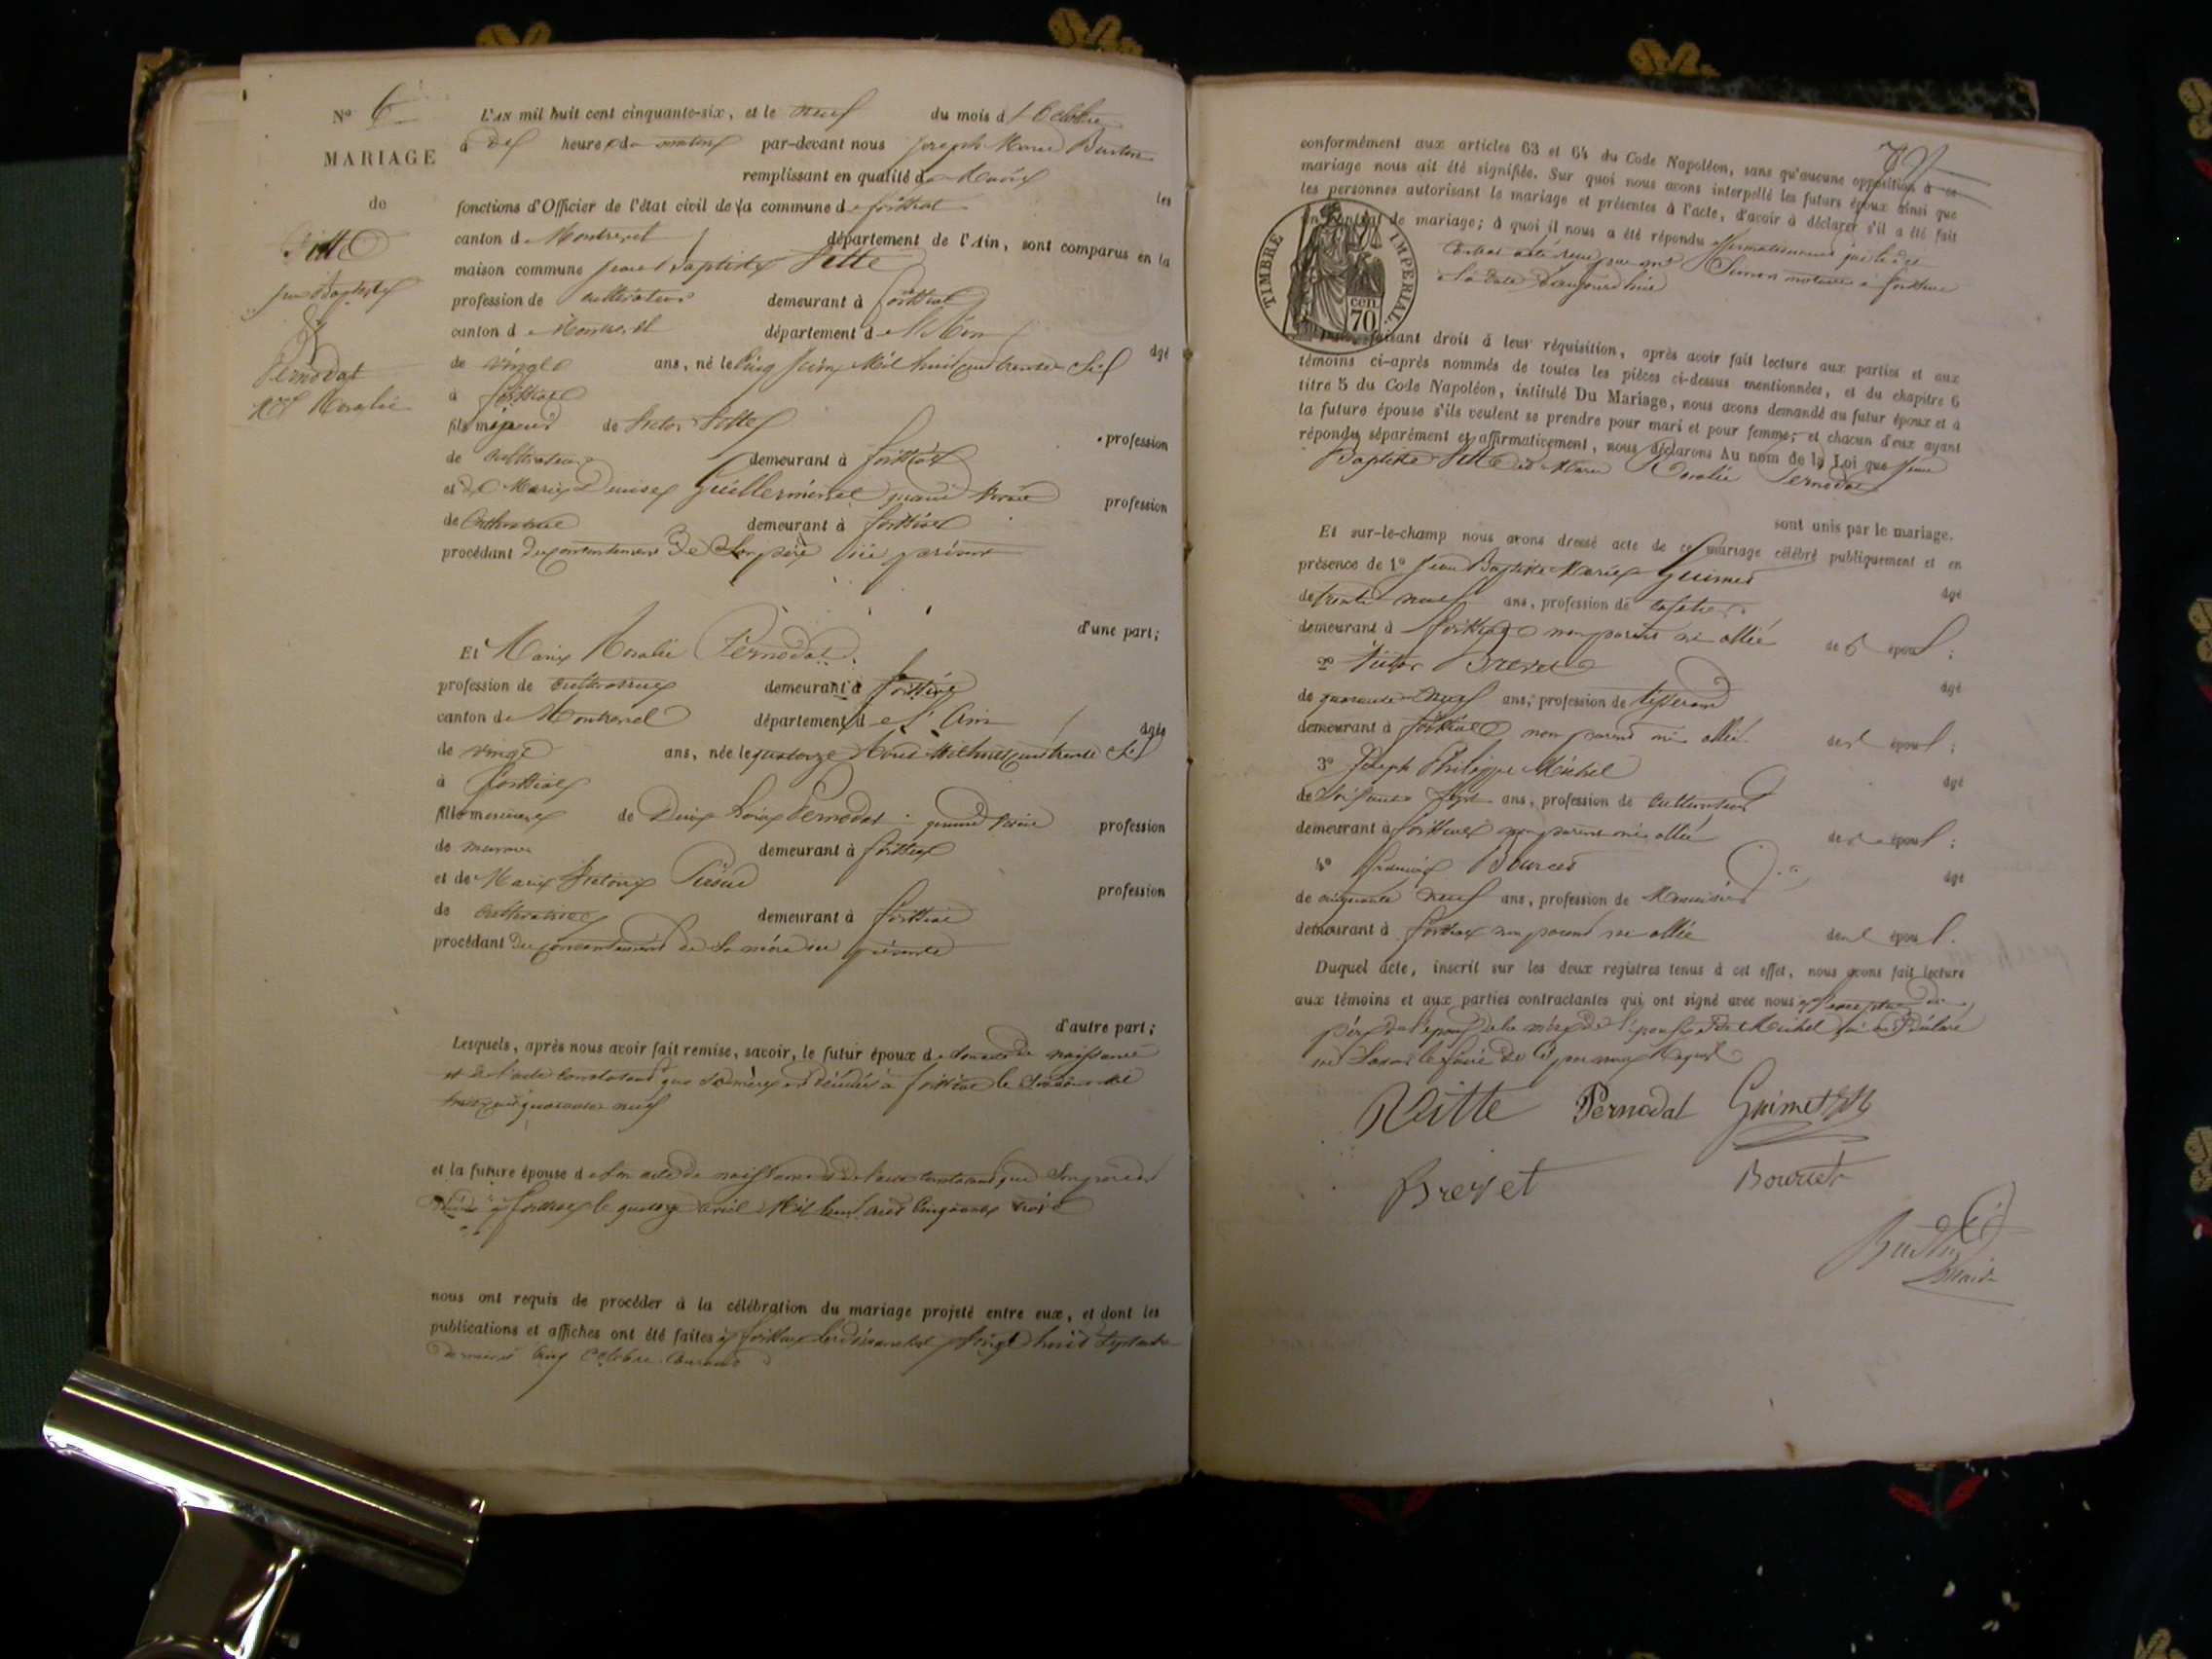 N° 6
MARIAGE
de
Vitte
Jean Baptiste
&
Pernodat
Rosalie
L'AN mil huit cent cinquante-six, et le neuf du mois d'Octobre
à dix heures du matin par-devant nous Joseph Marie
remplissant en qualité de Maire les
fonctions d'Officier de l'état civil de la commune de foissiat
canton de Montrevel département de l'Ain, sont comparus en la
maison commune Jean Baptiste Vitte
profession de cultivateur demeurant à foissiat
canton de Montrevel département de l'Ain âgé
de vingt ans, né le cinq juin Mil huit cent trente Six
à foissiat
fils mineur de Victor Vitte profession
de cultivateur demeurant à foissiat
et de Marie Denise Guillerminet quand vivait profession
de cultivatrice demeurant à foissiat
procédant du consentement de Son père ici présent
d'une part;
Et Marie Rosalie Pernodat
profession de cultivatrice demeurant à foissiat
canton de Montrevel département de l'Ain âgée
de vingt ans, née le quatorze Mil huit cent trente Six
à foissiat
fille mineure de Denis Pernodat quand vivait profession
de demeurant à foissiat
et de Marie profession
de cultivatrice demeurant à foissiat
procédant du consentement de Sa mère ici présente
d'autre part;
Lesquels, après nous avoir fait remise, savoir, le futur époux de Son acte de naissance
et de l'acte constatant que Sa mère est décédée à foissiat le
huit cent quarante neuf
et la future épouse de Son acte de naissance et de l'acte constatant que Son père est
décédé à foissiat le avril Mil huit cent cinquante trois
nous ont requis de procéder à la célébration du mariage projeté entre eux, et dont les
publications et affiches ont été faites à foissiat les dimanches vingt huit Septembre
dernier et cinq Octobre Courant
conformément aux articles 63 et 64 du Code Napoléon, sans qu'aucune opposition à ce
mariage nous ait été signifiée. Sur quoi nous avons interpellé les futurs époux ainsi que
les personnes autorisant le mariage et présentes à l'acte, d'avoir à déclarer s'il a été fait
un contrat de mariage; à quoi il nous a été répondu affirmativement que le dit
Contrat a été reçu par Me Simon notaire à foissiat
à la date d'aujourd'hui
TIMBRE IMPERIAL
70 cen
faisant droit à leur réquisition, après avoir fait lecture aux parties et aux
témoins ci-après nommés de toutes les pièces ci-dessus mentionnées, et du chapitre 6
titre 5 du Code Napoléon, intitulé Du Mariage, nous avons demandé au futur époux et à
la future épouse s'ils veulent se prendre pour mari et pour femme; et chacun d'eux ayant
répondu séparément et affirmativement, nous déclarons Au nom de la Loi que Jean
Baptiste Vitte et Marie Rosalie Pernodat
sont unis par le mariage.
Et sur-le-champ nous avons dressé acte de ce mariage célébré publiquement et en
présence de 1° Jean Baptiste Marie Guimet âgé
de trente neuf ans, profession de cafetier
demeurant à foissiat non parent ni allié des époux;
2° Victor Brevet âgé
de quarante neuf ans, profession de tisserand
demeurant à foissiat non parent ni allié des époux;
3° Joseph Philippe Michel âgé
de Soixante Sept ans, profession de cultivateur
demeurant à foissiat non parent ni allié des époux;
4° Bourcet âgé
de cinquante neuf ans, profession de Menuisier
demeurant à foissiat non parent ni allié des époux.
Duquel acte, inscrit sur les deux registres tenus à cet effet, nous avons fait lecture
aux témoins et aux parties contractantes qui ont signé avec nous à l'exception du
père de l'époux de la mère de l'épouse et de Michel qui ont déclaré
ne Savoir le faire de ce par nous Requis
Vitte Pernodat Guimet
Brevet Bourcet
maire